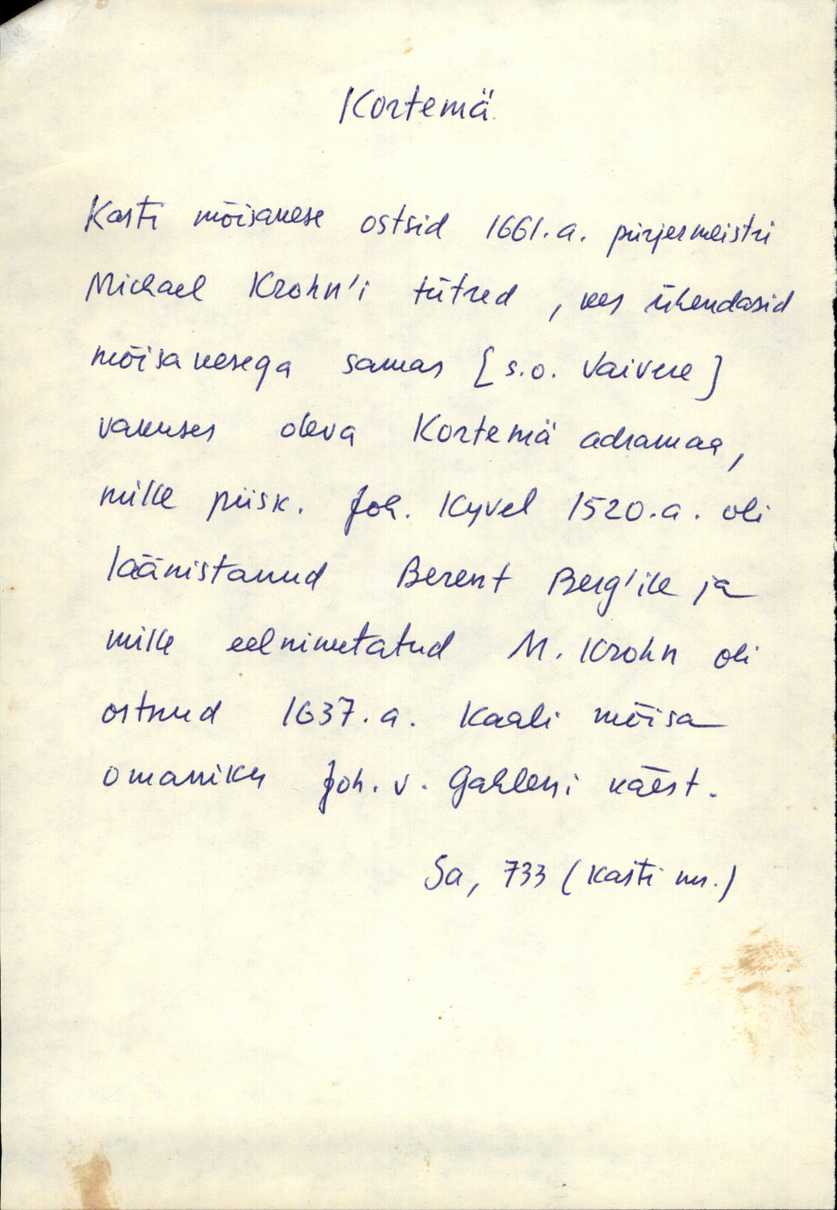 Kortemä
Kasti mõisakese ostsid 1661.a. pürjermeistri
Michael Krohn'i tütred, kes ühendasid
mõisakesega samas [s.o. Vaivere]
vakuses oleva Kortemä adramaa,
mille piisk. Joh. Kyvel 1520.a. oli
läänistanud Berent Berg'ile ja
mille eelnimetatud M. Krohn oli
ostnud 1637.a. Kaali mõisa
omaniku Joh. v. Gahleni käest.
Sa, 733 (Kasti ms.)